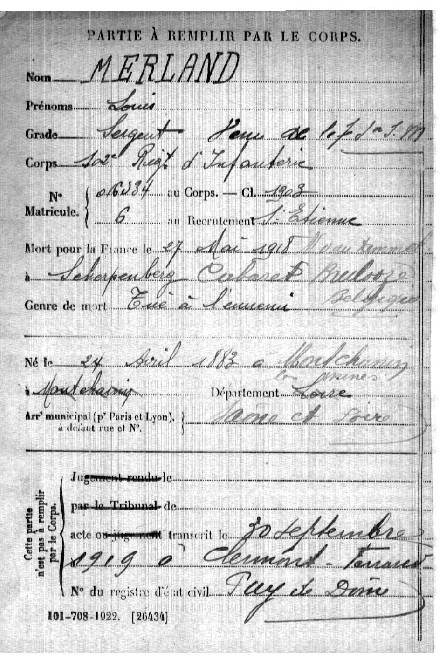 PARTIE À REMPLIR PAR LE CORPS.
Nom MERLAND
Prénoms Louis
Grade Sergent Venu de
Corps 102e Régt d'Infanterie
N° Matricule. { 016434 au Corps. — Cl. 1903
6 au Recrutement St Etienne
Mort pour la France le 27 Mai 1918
à Scherpenberg Cabaret Brulooze
Belgique
Genre de mort Tué à l'ennemi
Né le 24 Avril 1883 à Montchanin
les mines
à Montchanin Département Loire
Arrt municipal (pr Paris et Lyon), à défaut rue et N°. } Saone et Loire
Cette partie n'est pas à remplir par le Corps.
Jugement rendu le
par le Tribunal de
acte ou jugement transcrit le 30 septembre
1919 à Clermont-Ferrand
N° du registre d'état civil Puy de Dôme
101-708-1922. [26434]